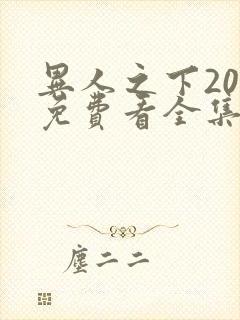 異人之下20
免費看全集
塵二二